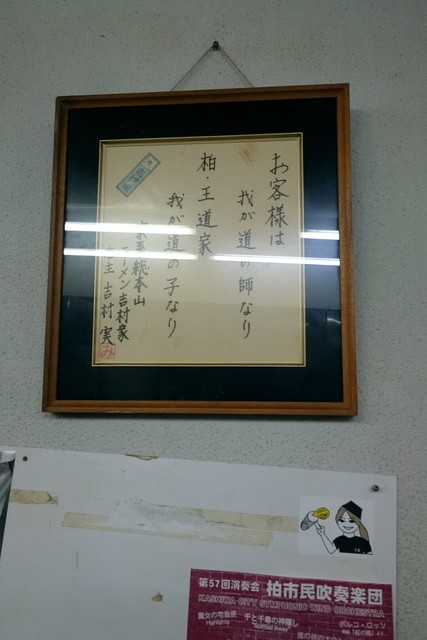 お客様は
我が道の師なり
柏・王道家
我が道の子なり
家系総本山
ラーメン吉村家
店主 吉村 実
み
第57回演奏会 柏市民吹奏楽団
KASHIWA CITY SYMPHONIC WIND ORCHESTRA
魔女の宅急便
Highlights
千と千尋の神隠し
Spirited Away
ポルコ・ロッソ